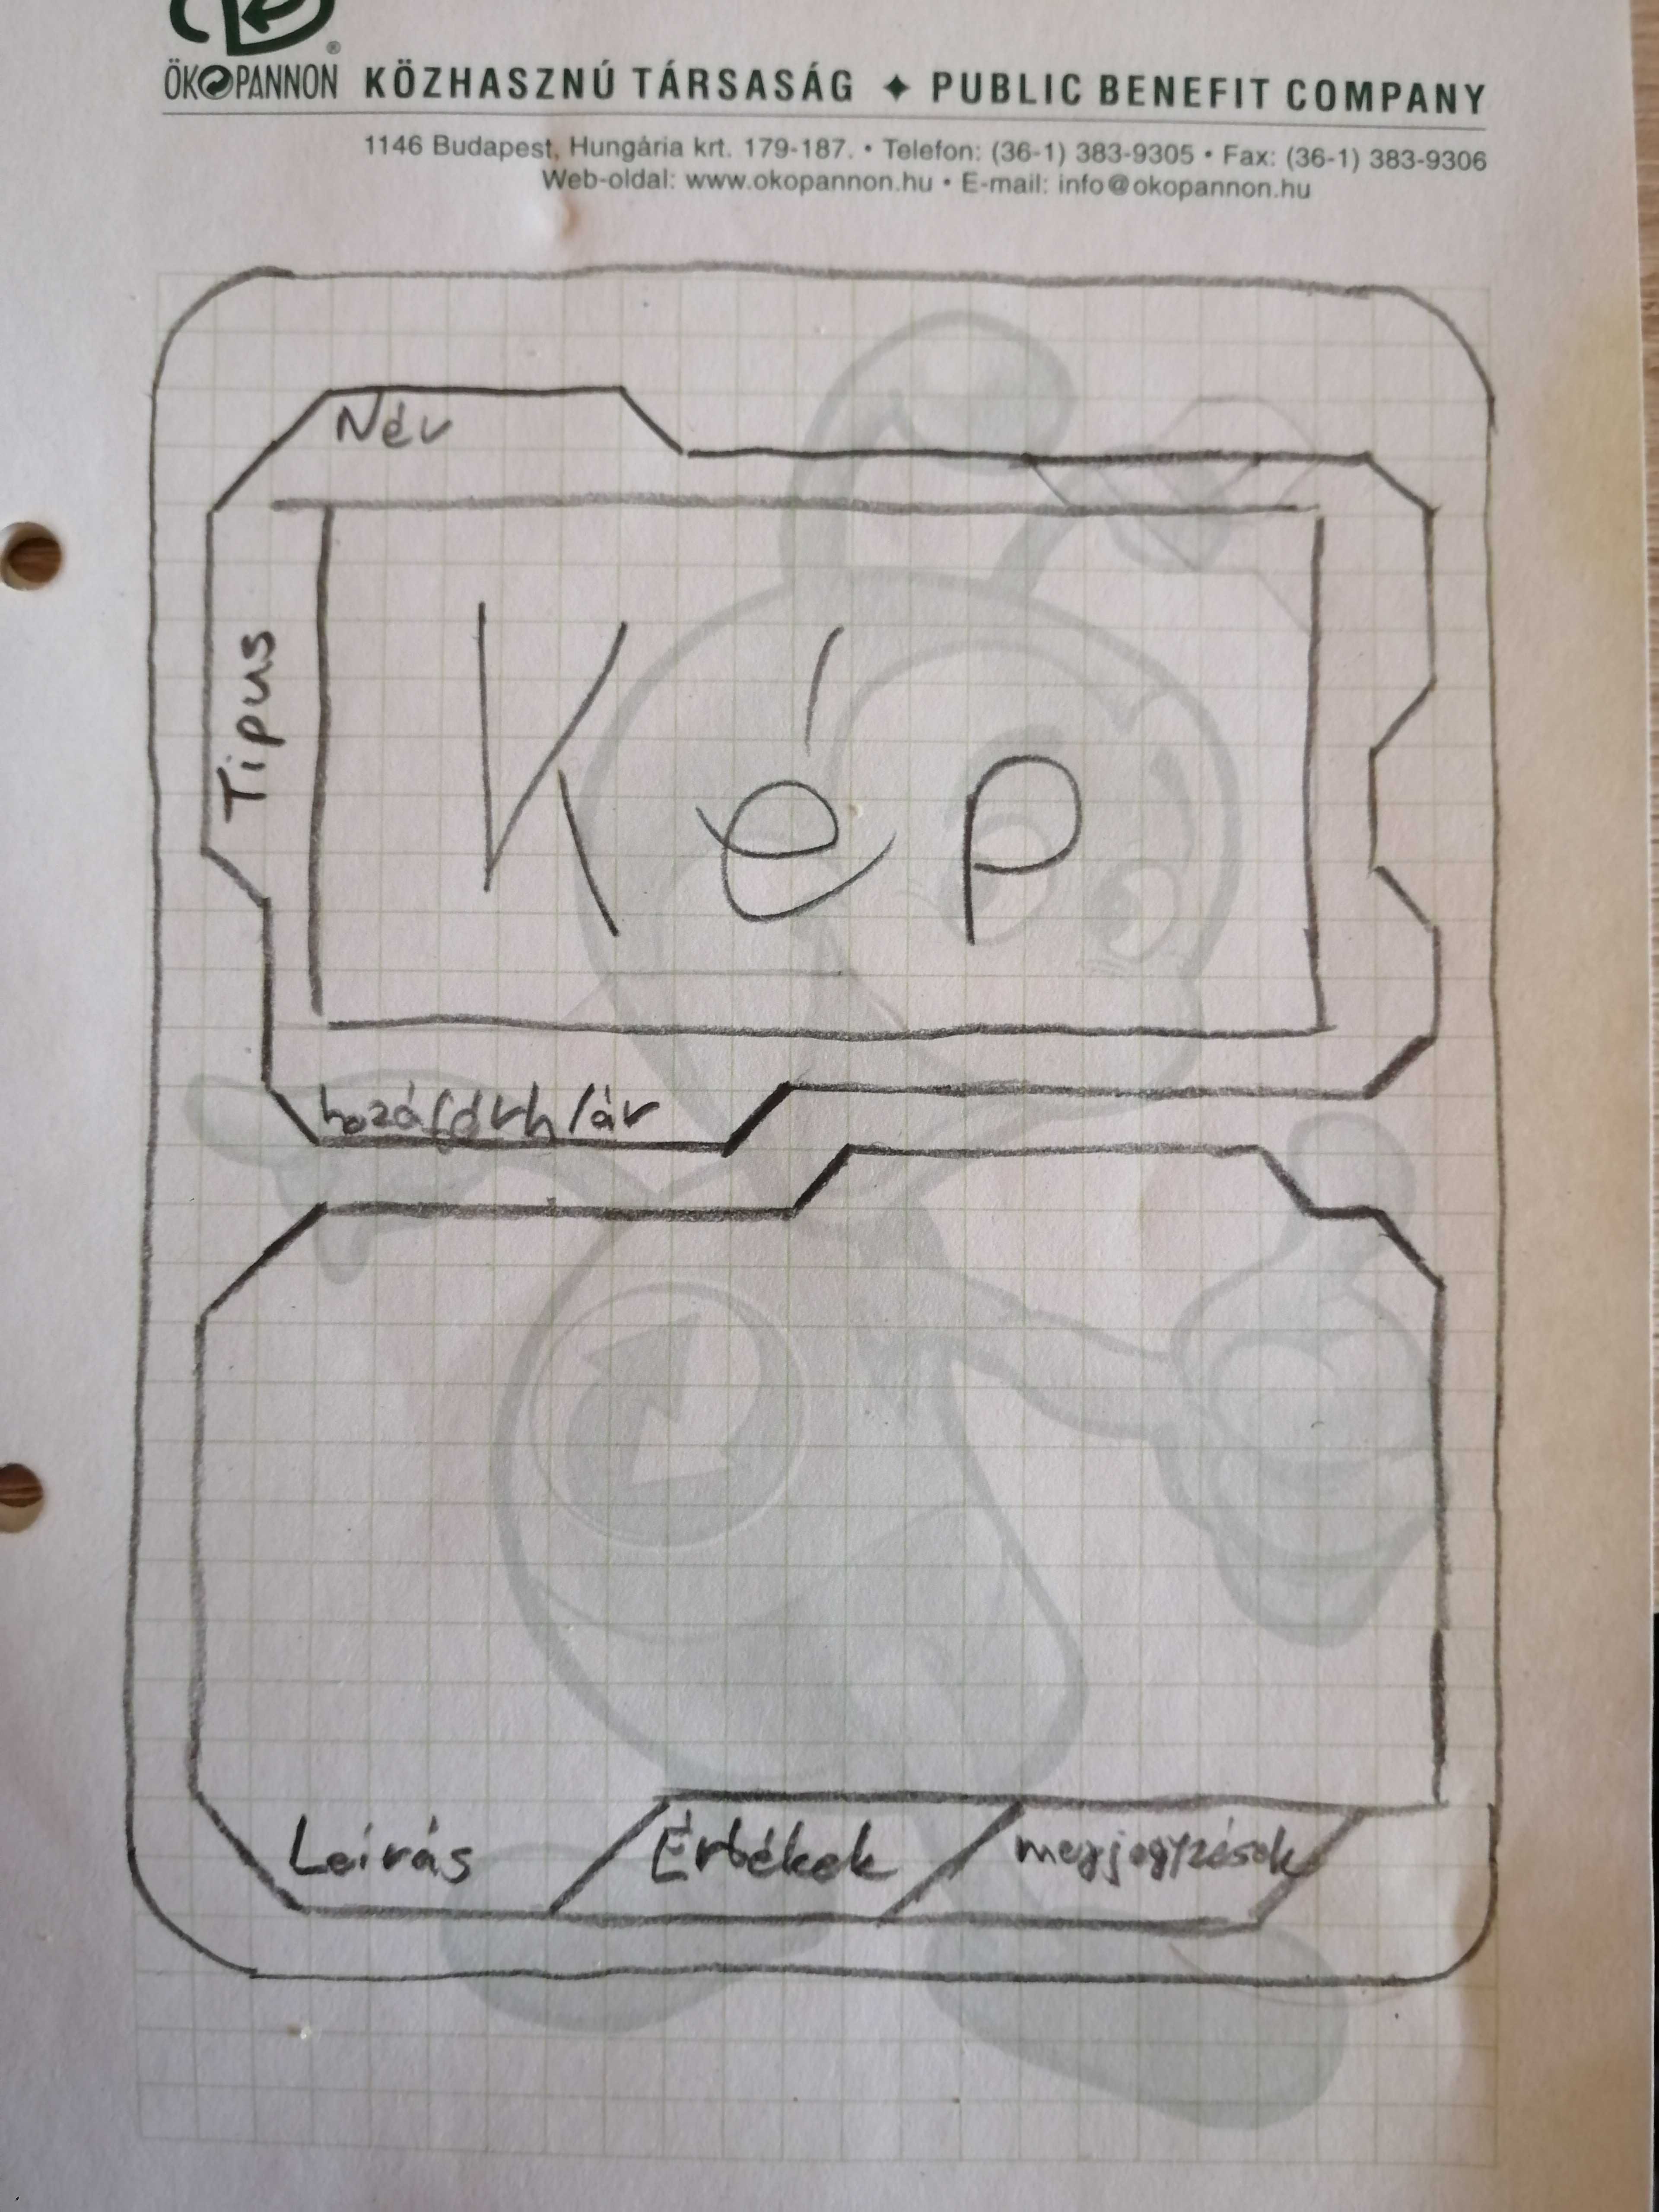 ÖKOPANNON KÖZHASZNÚ TÁRSASÁG ✦ PUBLIC BENEFIT COMPANY
1146 Budapest, Hungária krt. 179-187. • Telefon: (36-1) 383-9305 • Fax: (36-1) 383-9306
Web-oldal: www.okopannon.hu • E-mail: info@okopannon.hu
Név
Tipus
Kép
Leírás
Értékek